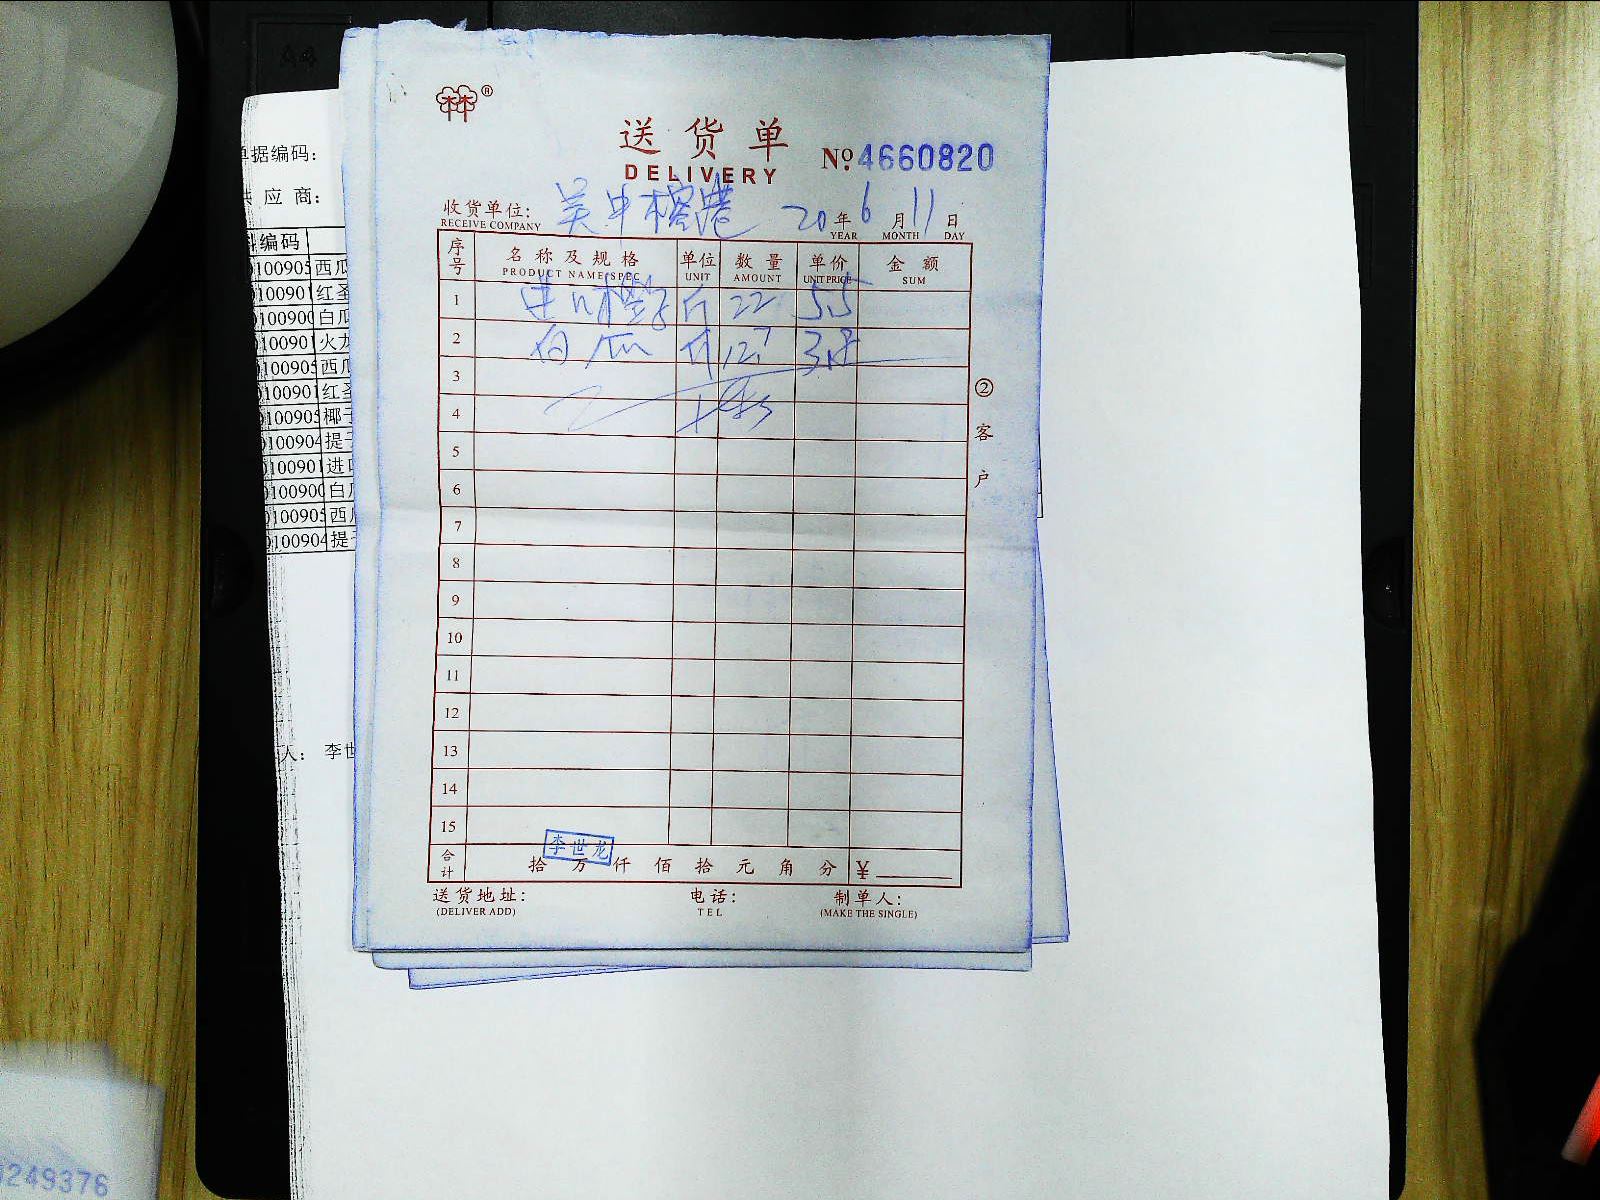 A4
单据编码：
供 应 商：
编码
0100905 西瓜
010090 红圣
010090 白瓜
010090 火龙
010090 西瓜
010090 红圣
010090 椰子
010090 提子
010090 进口
010090 白瓜
010090 西瓜
010090 提子
人： 李世
林林®
送货单
DELIVERY
No. 4660820
收货单位： 吴中 20年6月11日
RECEIVE COMPANY YEAR MONTH DAY
序号 名称及规格 单位 数量 单价 金额
PRODUCT NAME/SPEC UNIT AMOUNT UNIT PRICE SUM
1 进口橙子 斤 22 5.5
2 白瓜 斤 12.7 3.8
3
4
5
6
7
8
9
10
11
12
13
14
15
李世龙
合计 拾 万 仟 佰 拾 元 角 分 ¥
送货地址： 电话： 制单人：
(DELIVER ADD) TEL (MAKE THE SINGLE)
② 客户
249376